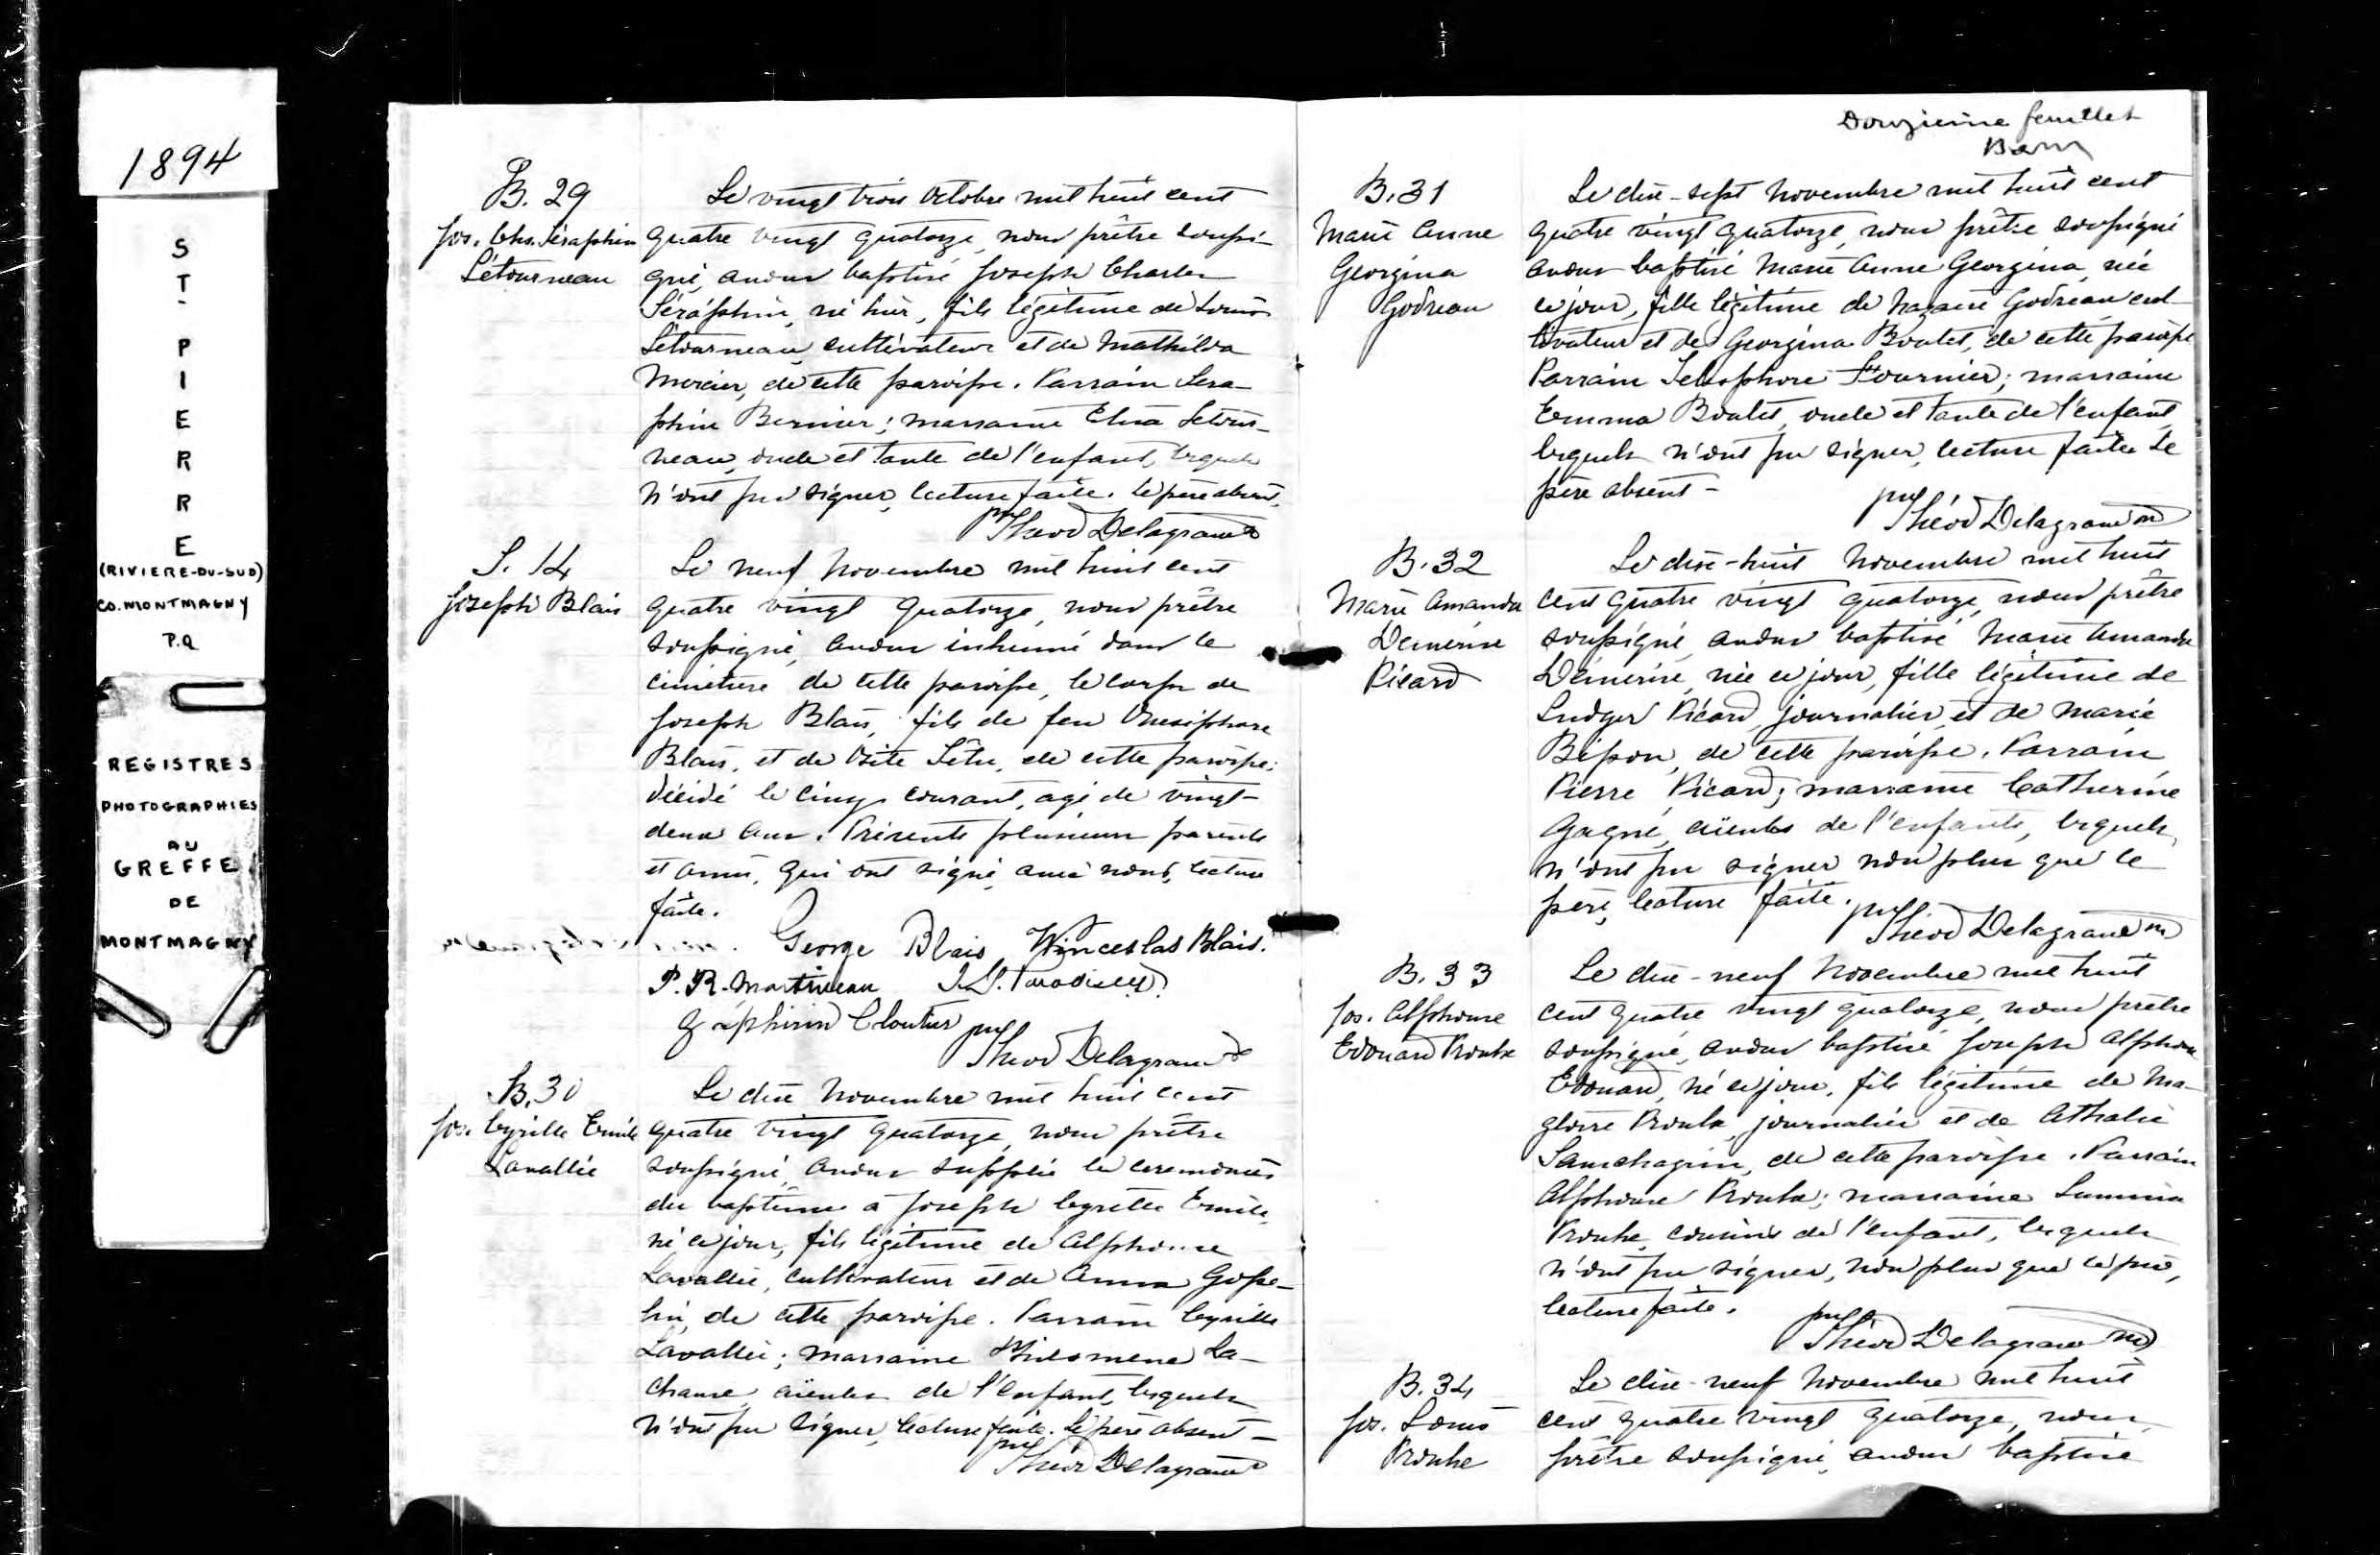 1894
ST-PIERRE
(RIVIERE-DU-SUD)
CO. MONTMAGNY
P.Q
REGISTRES
PHOTOGRAPHIES
AU
GREFFE
DE
MONTMAGNY
B. 29
Jos. Chs. Séraphin
Létourneau
Le vingt trois Octobre mil huit cent
quatre vingt quatorze, nous prêtre soussi-
gné, avons baptisé Joseph Charles
Séraphin, né hier, fils légitime de Louis
Létourneau, cultivateur et de Mathilda
Mercier, de cette paroisse. Parrain Sera-
phin Bernier; marraine Elisa Letour-
neau, oncle et tante de l'enfant, lesquels
n'ont pu signer, lecture faite. Le père absent.
ptre
Théod Delagrave
S. 14
Joseph Blais
Le neuf Novembre mil huit cent
quatre vingt quatorze, nous prêtre
soussigné, avons inhumé dans le
cimetière de cette paroisse, le corps de
Joseph Blais, fils de feu Onesiphore
Blais, et de Zite Têtu, de cette paroisse;
décédé le cinq courant, agé de vingt-
deux ans. Présents plusieurs parents
et amis, qui ont signé avec nous, lecture
faite.
George Blais Winceslas Blais.
P. R. Martineau
Zéphirin Cloutier
ptre
Théod Delagrave
B. 30
Jos. Cyrille Emile
Lavallée
Le dix Novembre mil huit cent
quatre vingt quatorze, nous prêtre
soussigné, avons supplée les ceremonies
du baptême à Joseph Cyrille Emile,
né ce jour, fils légitime de Alphonse
Lavallée, cultivateur et de Anna Gosse-
lin, de cette paroisse. Parrain Cyrille
Lavallée; marraine Philomene La-
chance, aïeules de l'enfant, lesquels
n'ont pu signer, lecture faite. Le père absent-
ptre
Théod Delagrave
Douzieme feuillet
B. 31
Marie Anne
Georgina
Godreau
Le dix-sept Novembre mil huit cent
quatre vingt quatorze, nous prêtre soussigné
avons baptisé Marie Anne Georgina, née
ce jour, fille légitime de Nazaire Godreau cul-
tivateur et de Georgina Boulet, de cette paroisse
Parrain Telesphore Fournier; marraine
Emma Boulet, oncle et tante de l'enfant,
lesquels n'ont pu signer, lecture faite. Le
père absent-
ptre
Théod Delagrave
B. 32
Marie Amanda
Démérise
Picard
Le dix-huit Novembre mil huit
cent quatre vingt quatorze, nous prêtre
soussigné, avons baptisé Marie Amanda
Démérise, née ce jour, fille légitime de
Ludger Picard, journalier, et de Marie
Bisson, de cette paroisse. Parrain
Pierre Picard; marraine Catherine
Gagné, aïeules de l'enfants, lesquels
n'ont pu signer non plus que le
père, lecture faite.
ptre
Théod Delagrave
B. 33
Jos. Alphonse
Edouard Proulx
Le dix-neuf Novembre mil huit
cent quatre vingt quatorze, nous prêtre
soussigné, avons baptisé Joseph Alphonse
Edouard, né ce jour, fils légitime de Ma-
gloire Proulx, journalier et de Athalie
Sanschagrin, de cette paroisse. Parrain
Alphonse Proulx; marraine Lumina
Proulx, cousins de l'enfant, lesquels
n'ont pu signer, non plus que le père,
lecture faite.
ptre
Théod Delagrave
B. 34
Jos. Louis
Proulx
Le dix-neuf Novembre mil huit
cent quatre vingt quatorze, nous
prêtre soussigné, avons baptisé